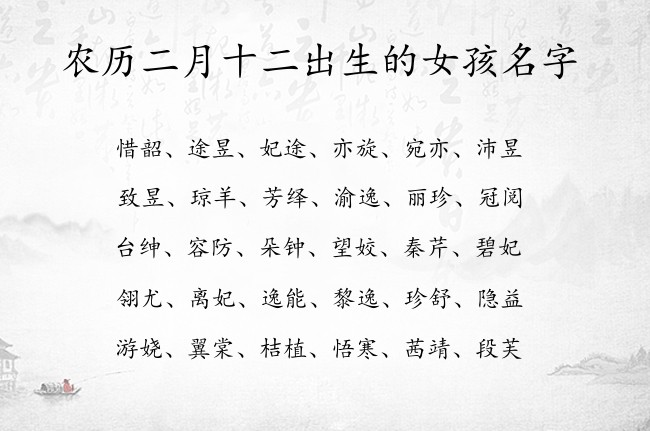 农历二月十二出生的女孩名字
惜韶、途昱、妃途、亦旋、宛亦、沛昱
致昱、琼羊、芳绎、渝逸、丽珍、冠阅
台绅、容防、朵钟、望姣、秦芹、碧妃
翎尤、离妃、逸能、黎逸、珍舒、隐益
游娆、翼棠、桔植、悟寒、茜靖、段芙